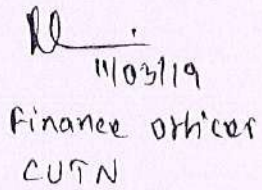 11/03/19
Finance Officer
CUTN